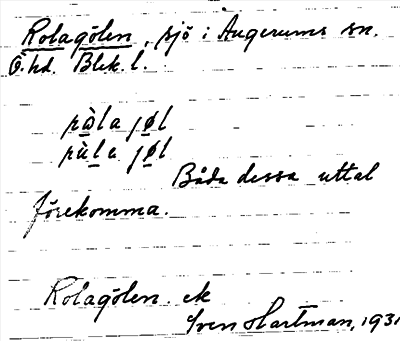 Rolagölen, sjö i Augerums sn.
Ö. hd. Blek. l.
ràla jøl
rùla jøl
Båda dessa uttal
förekomma.
Rolagölen. ek
Sven Hartman, 1931